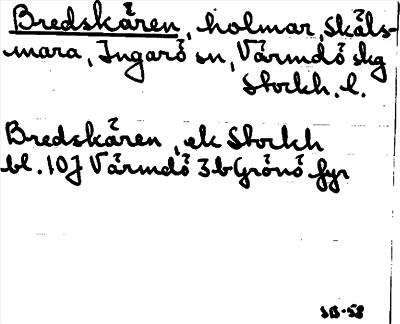 Bredskären, holmar, Skåls-
mara, Ingarö sn, Värmdö skg
Stockh. l.
Bredskären, ek Stockh
bl. 10J Värmdö 3b Grönö fyr
SB-58